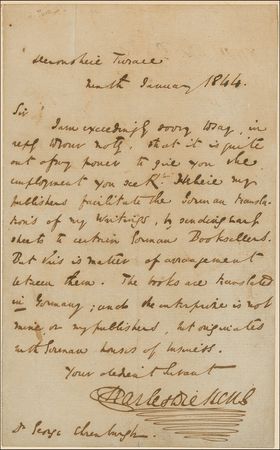 Devonshire Terrace
Ninth January 1844.
Sir
I am exceedingly sorry to say, in
reply to your note, that it is quite
out of my power to give you the
employment you seek. I believe my
publishers facilitate the German transla-
tions of my writings, by sending
sheets to certain German Booksellers.
But this is matter of arrangement
between them. The books are translated
in Germany; and the enterprize is not
mine, or my publishers, but originates
with German houses of business.
Your obedient Servant
Charles Dickens
Dr George